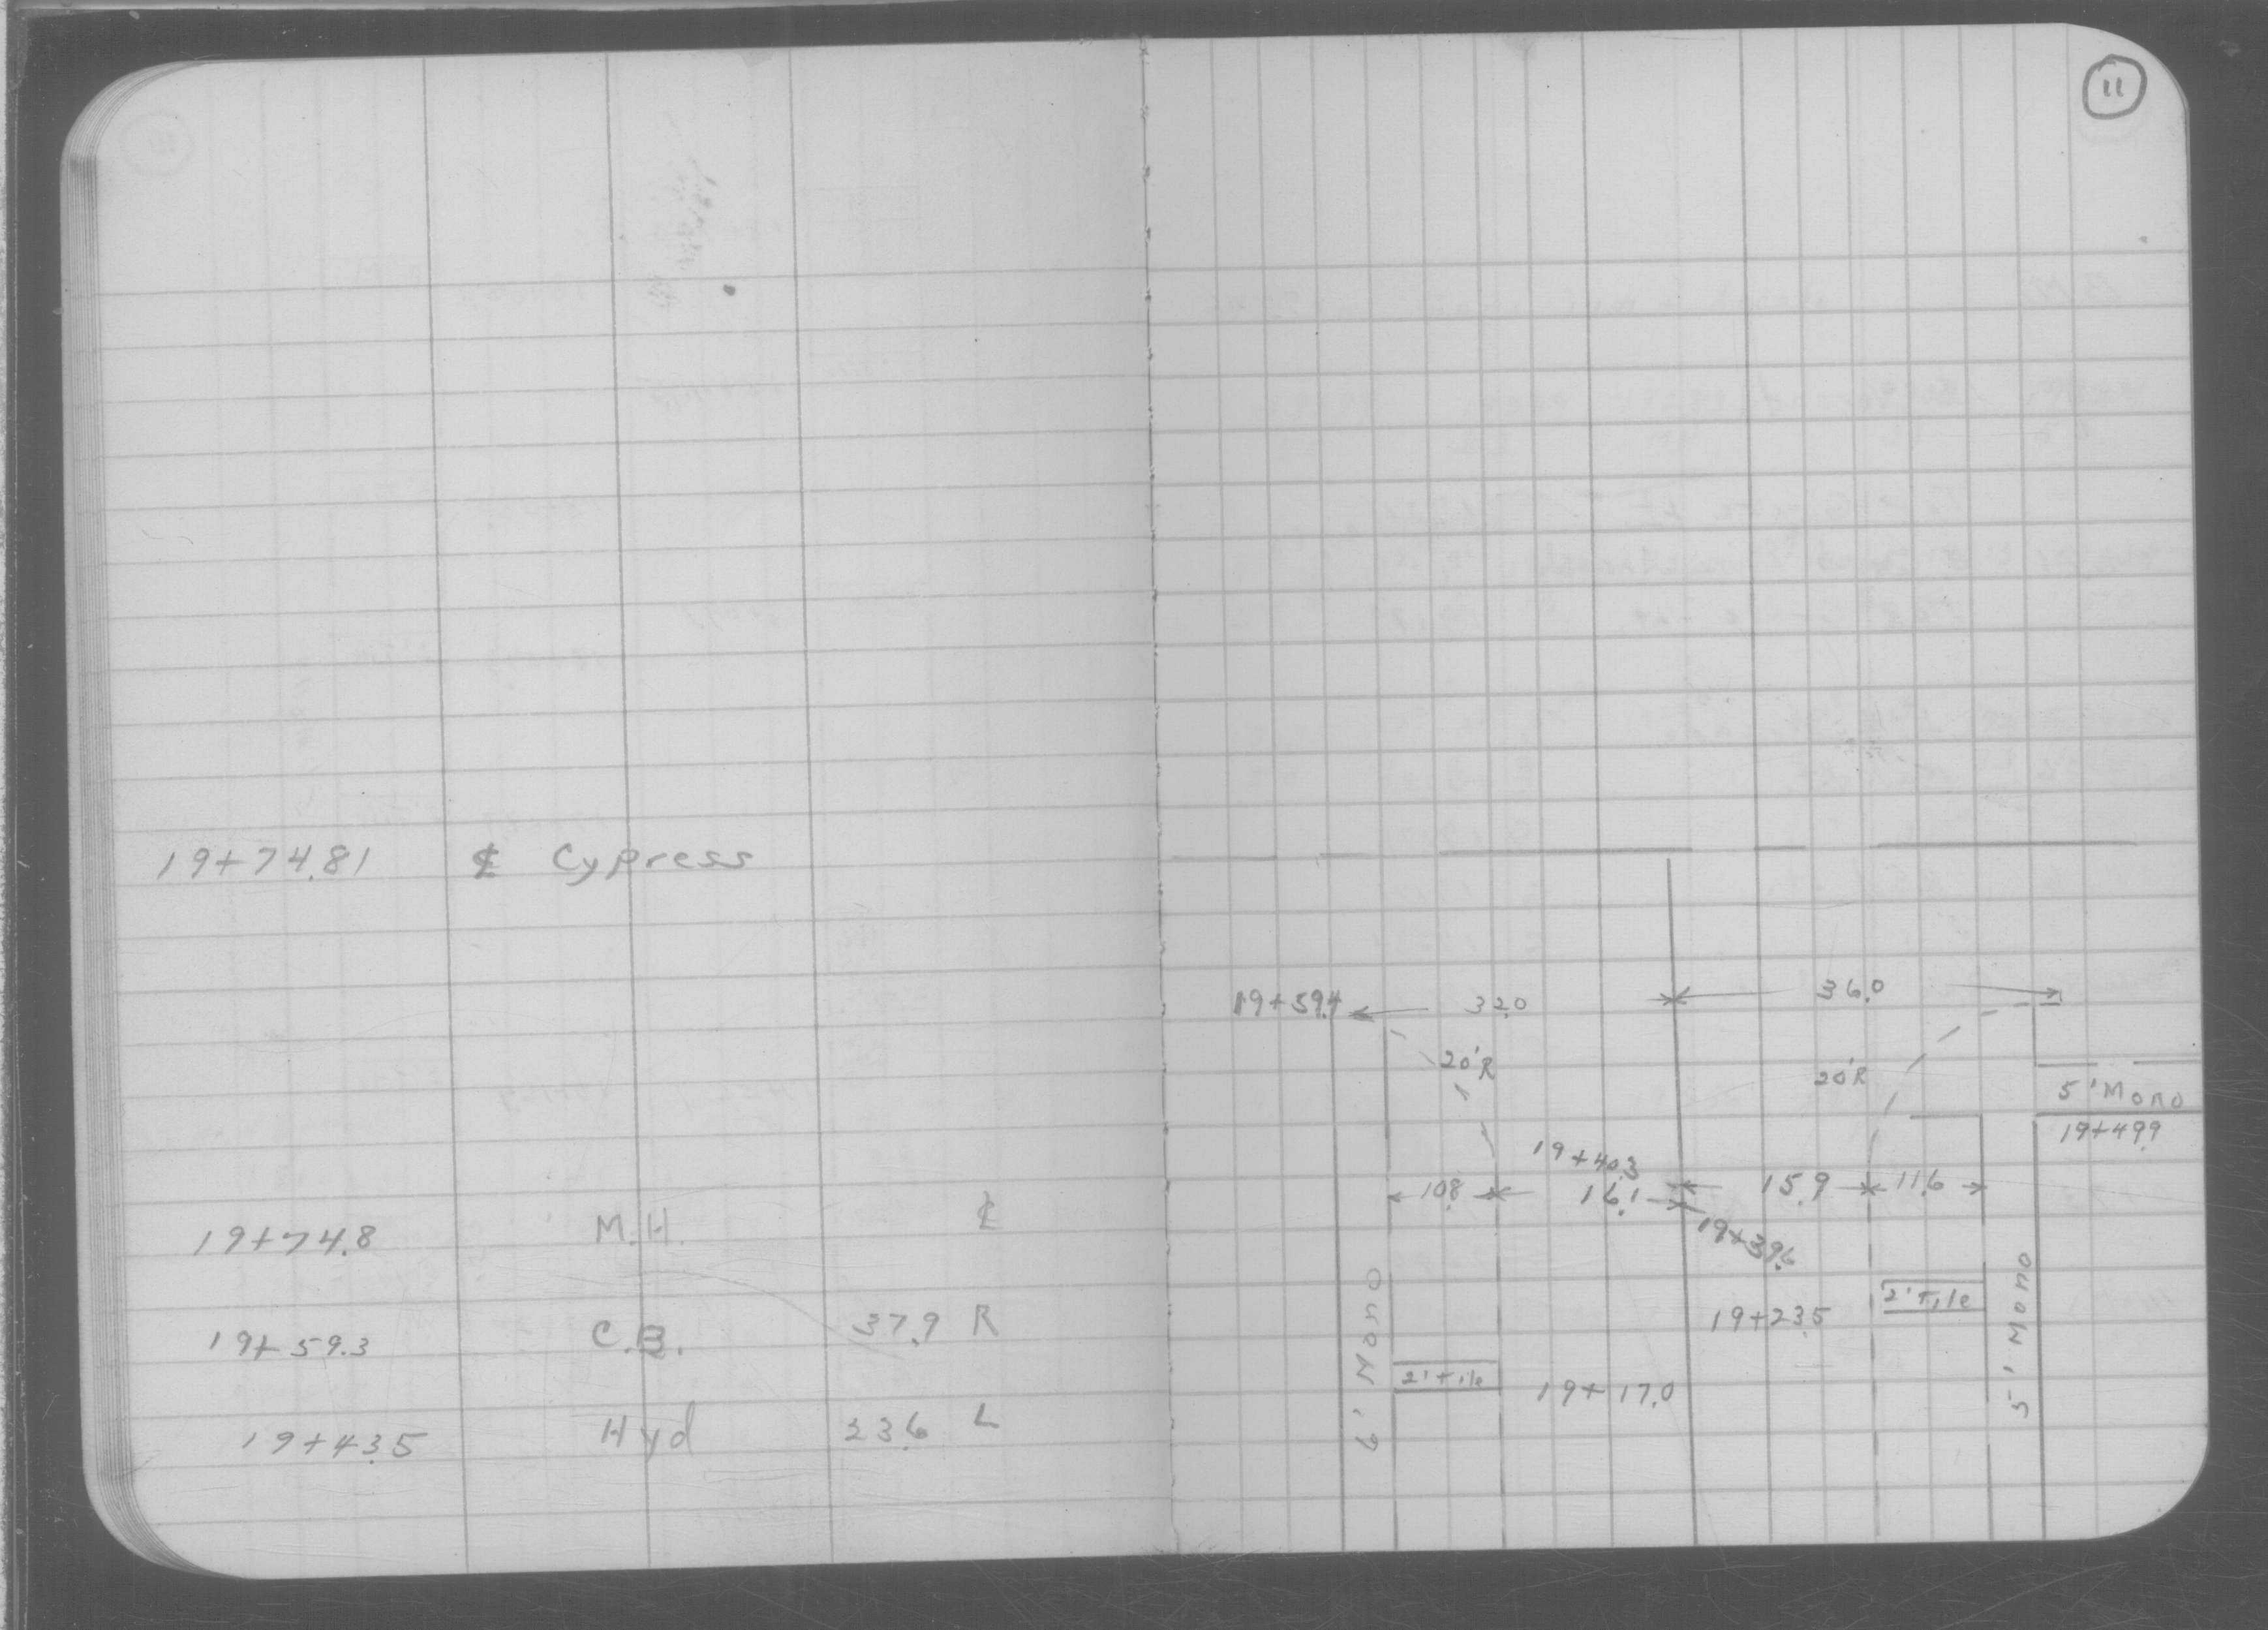 11
19+74.81 ℄ Cypress
19+74.8 M.H. ℄
19+59.3 C.B. 37.9 R
19+43.5 Hyd 23.6 L
19+59.4 32.0 36.0
20'R 20'R
5' Mono
19+49.9
19+40.3
10.8 16.1 15.9 11.6
19+39.6
6' Mono 5' Mono
2' Tile
19+23.5
2' Tile
19+17.0